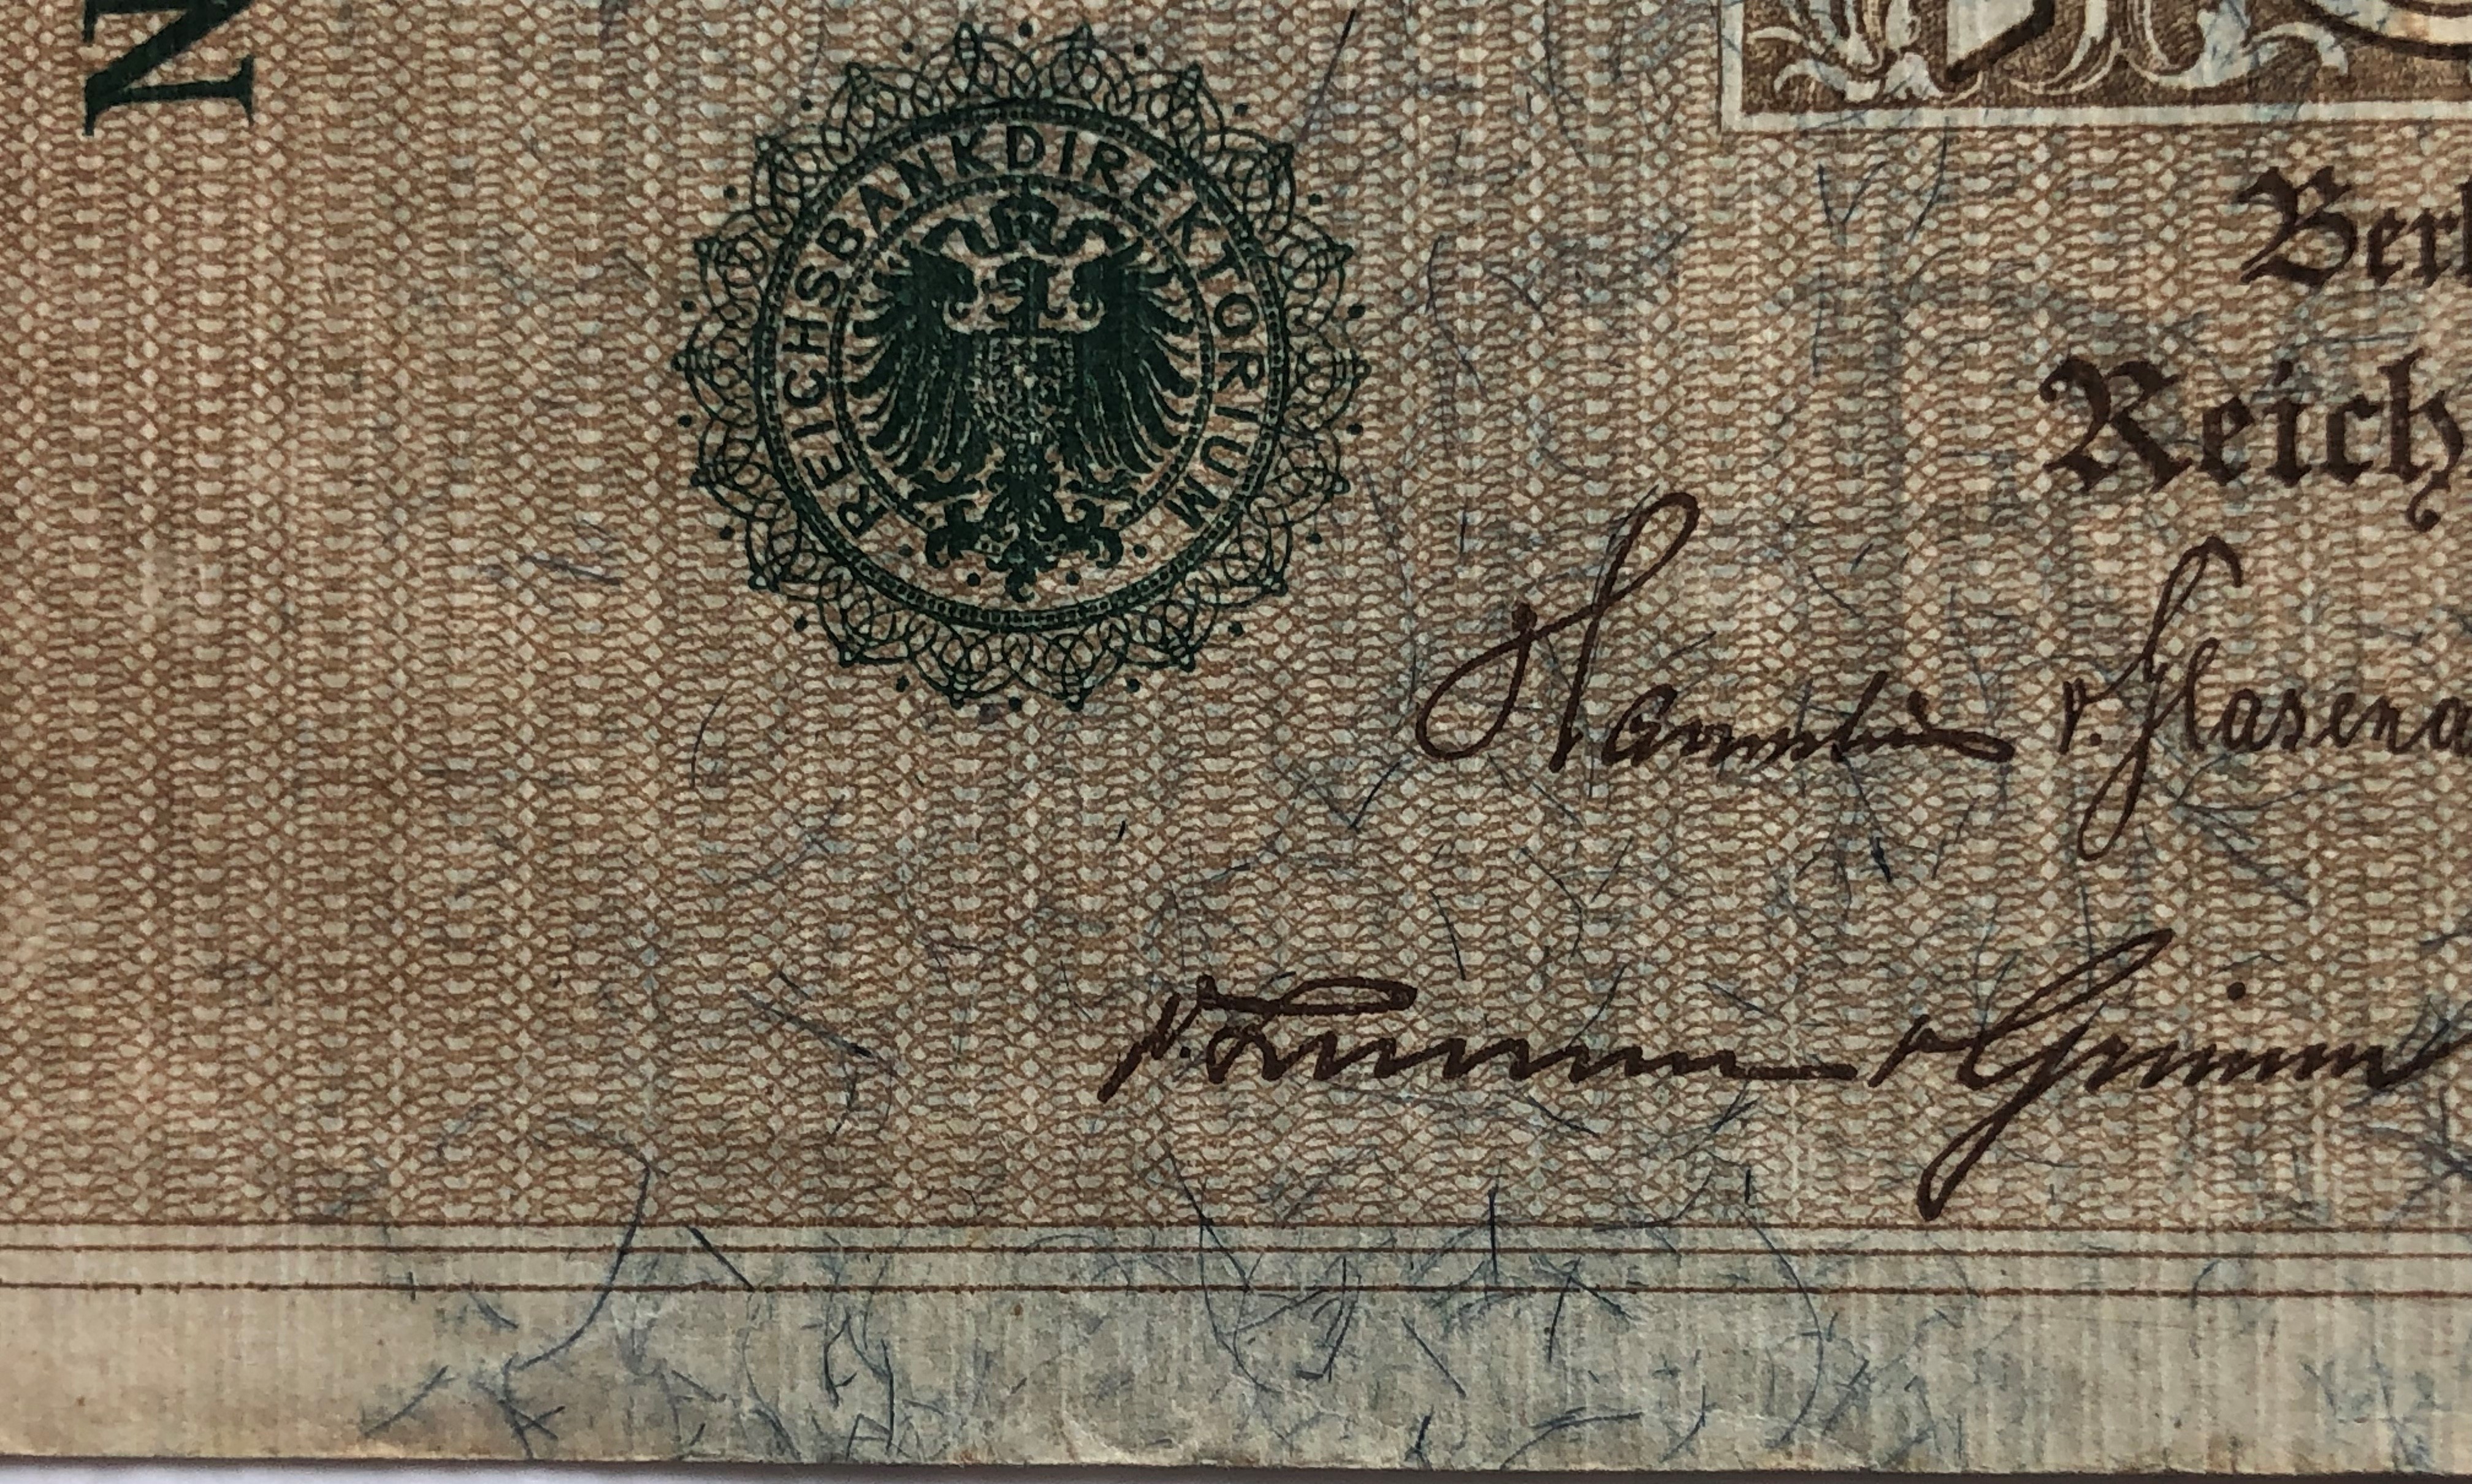 N
REICHSBANKDIREKTORIUM
Berl
Reich
v. Glasena
v. Grimm